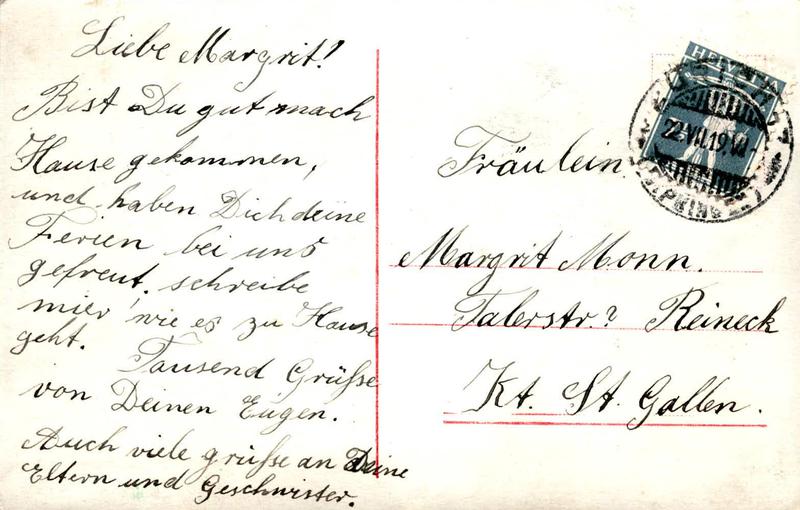 Liebe Margrit!
Bist Du gut nach
Hause gekommen,
und haben Dich deine
Ferien bei uns
gefreut. schreibe
mier wie es zu Hause
geht. Tausend Grüsse
von Deinen Eugen.
Auch viele grüsse an Deine
Eltern und Geschwister.
HELVETIA
22.VII.19
Fräulein
Margrit Monn.
Talerstr.? Reineck
Kt. St. Gallen.